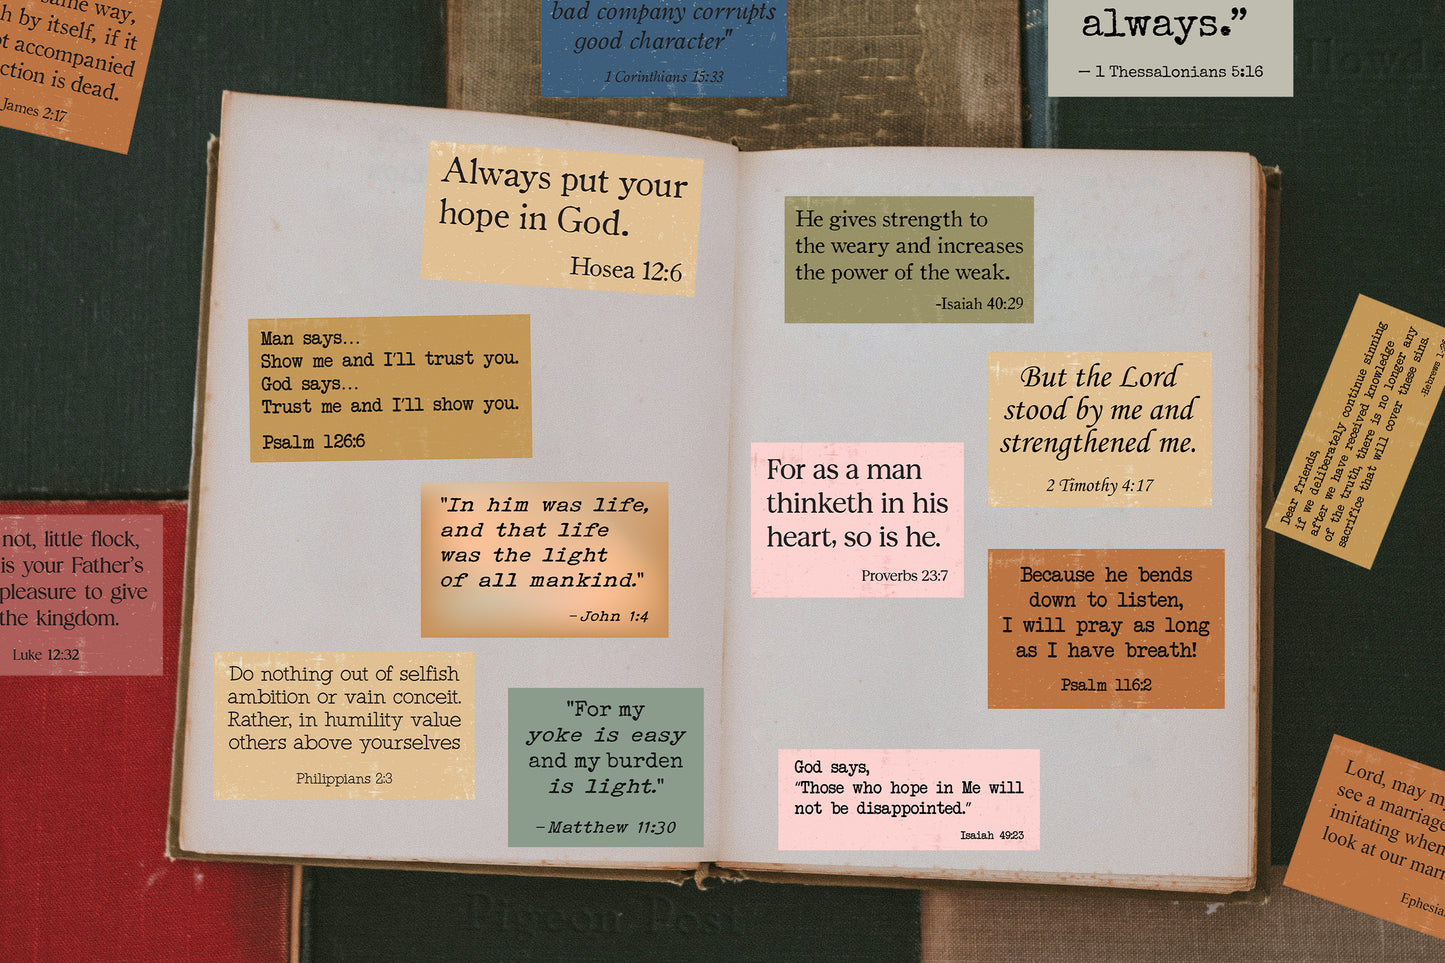 same way,
h by itself, if it
t accompanied
ction is dead.
James 2:17
bad company corrupts
good character"
1 Corinthians 15:33
always.”
— 1 Thessalonians 5:16
Always put your
hope in God.
Hosea 12:6
Man says...
Show me and I'll trust you.
God says...
Trust me and I'll show you.
Psalm 126:6
"In him was life,
and that life
was the light
of all mankind."
–John 1:4
Do nothing out of selfish
ambition or vain conceit.
Rather, in humility value
others above yourselves
Philippians 2:3
"For my
yoke is easy
and my burden
is light."
–Matthew 11:30
He gives strength to
the weary and increases
the power of the weak.
-Isaiah 40:29
But the Lord
stood by me and
strengthened me.
2 Timothy 4:17
For as a man
thinketh in his
heart, so is he.
Proverbs 23:7
Because he bends
down to listen,
I will pray as long
as I have breath!
Psalm 116:2
God says,
“Those who hope in Me will
not be disappointed.”
Isaiah 49:23
not, little flock,
is your Father's
pleasure to give
the kingdom.
Luke 12:32
Dear friends,
if we deliberately continue sinning
after we have received knowledge
of the truth, there is no longer any
sacrifice that will cover these sins.
-Hebrews
Lord, may
see a marriage
imitating when
look at our
Pigeon